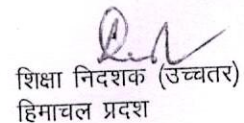 शिक्षा निदशक (उच्चतर)
हिमाचल प्रदश